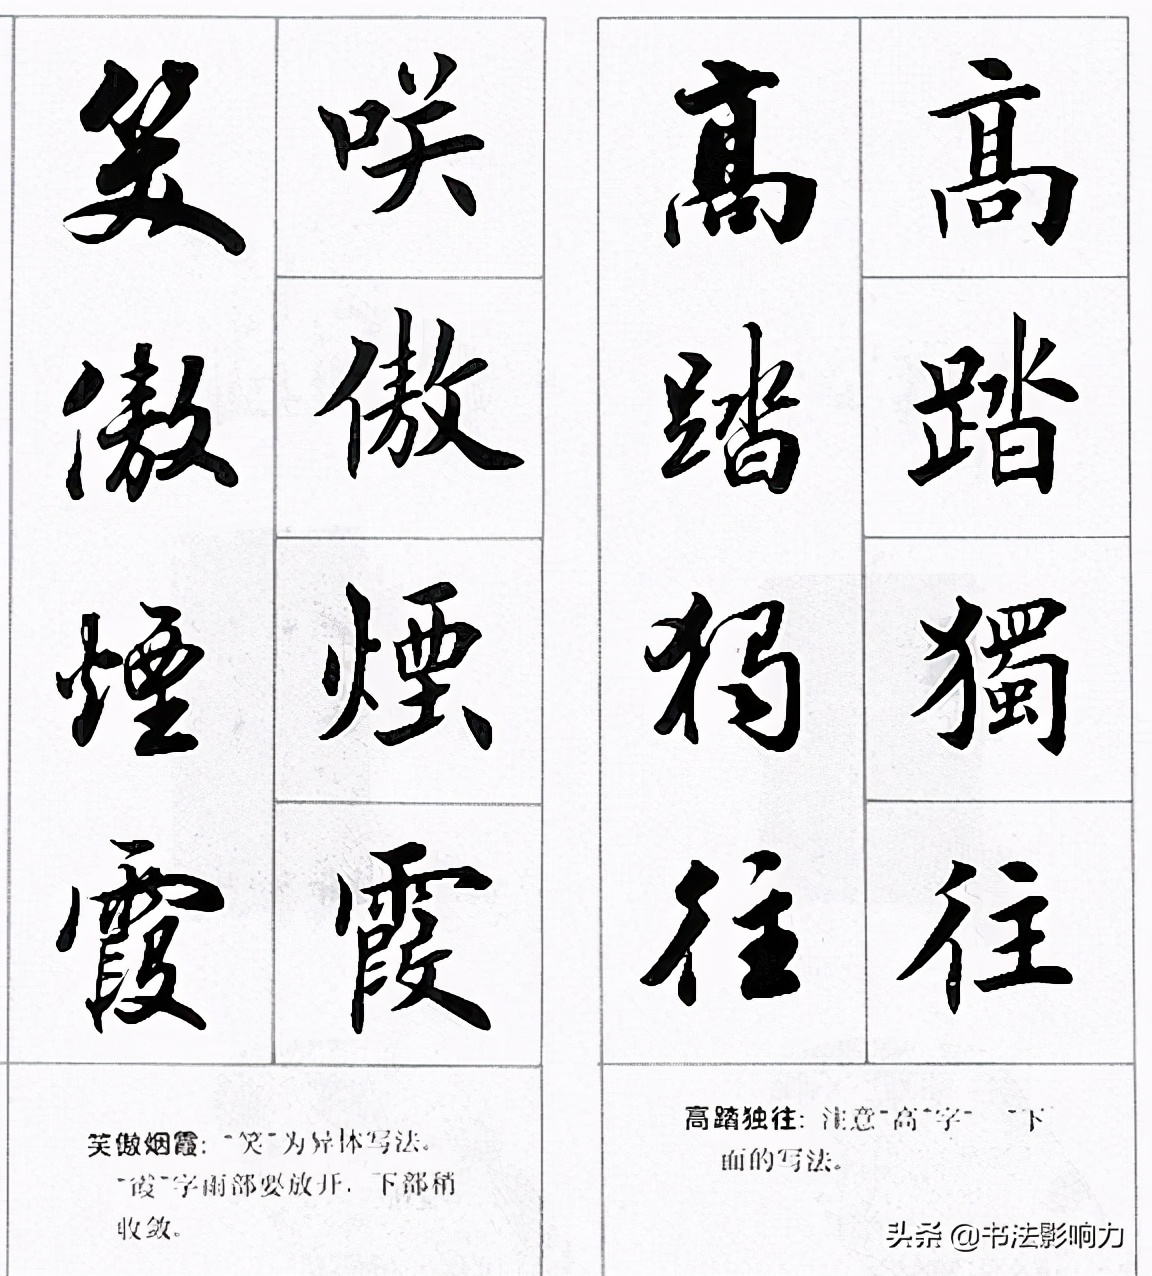 高踏獨往
高踏獨往
高踏独往：注意“高”字 下
面的写法。
咲傲煙霞
笑傲煙霞
笑傲烟霞：“笑”为异体写法。
“霞”字雨部要放开，下部稍
收敛。
头条 @书法影响力